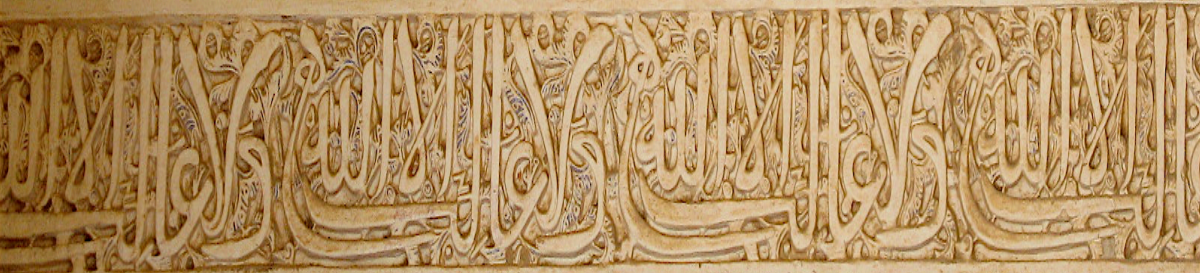 ولا غالب إلا الله ولا غالب إلا الله ولا غالب إلا الله